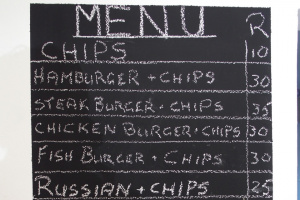 MENU R
CHIPS 10
HAMBURGER + CHIPS 30
STEAK BURGER + CHIPS 35
CHICKEN BURGER + CHIPS 30
FISH BURGER + CHIPS 30
RUSSIAN + CHIPS 25